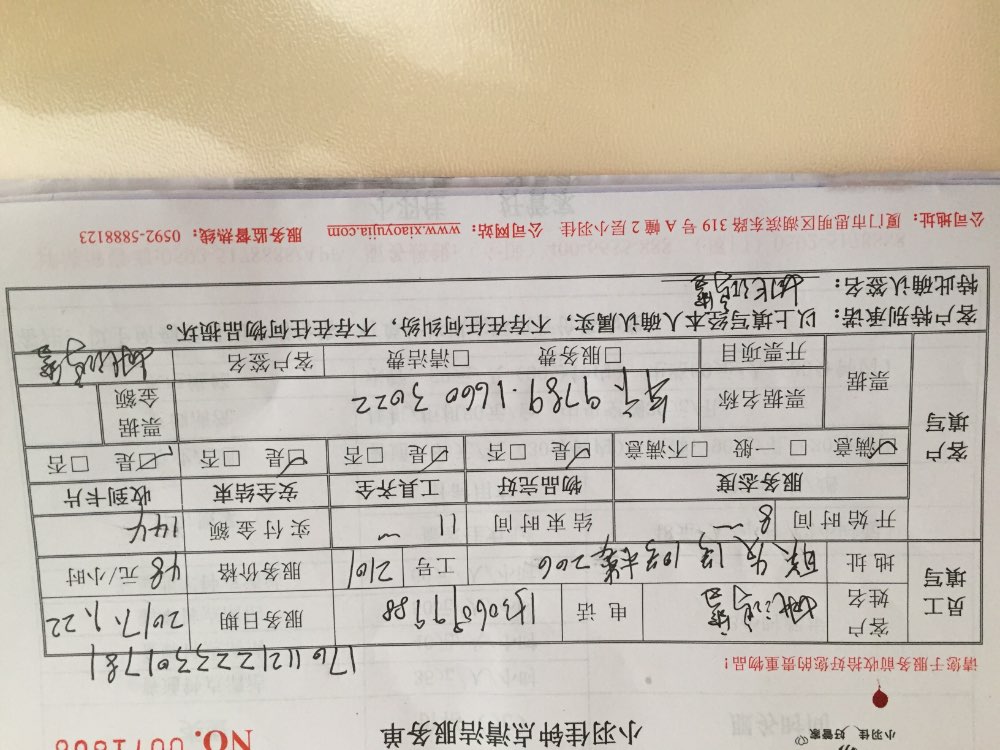 小羽佳 好管家
小羽佳钟点清洁服务单
NO.
请您于服务前收拾好您的贵重物品!
17011212223301781
员工填写
客户姓名
电话
13060819988
服务日期
2017.1.22
地址
206
工号
2101
服务价格
48 元/小时
开始时间
8
结束时间
11
实付金额
144
客户填写
服务态度
物品完好
工具齐全
安全结束
收到卡片
☑满意 □一般 □不满意
☑是 □否
☑是 □否
☑是 □否
☑是 □否
票据
票据名称
9789.1660 3022
票据金额
开票项目
□服务费 □清洁费
客户签名
客户特别承诺：以上填写经本人确认属实，不存在任何纠纷，不存在任何物品损坏。
特此确认签名：
公司地址：厦门市思明区湖滨东路 319 号 A 幢 2 层小羽佳 公司网站：www.xiaoyujia.com 服务监督热线：0592-5888123